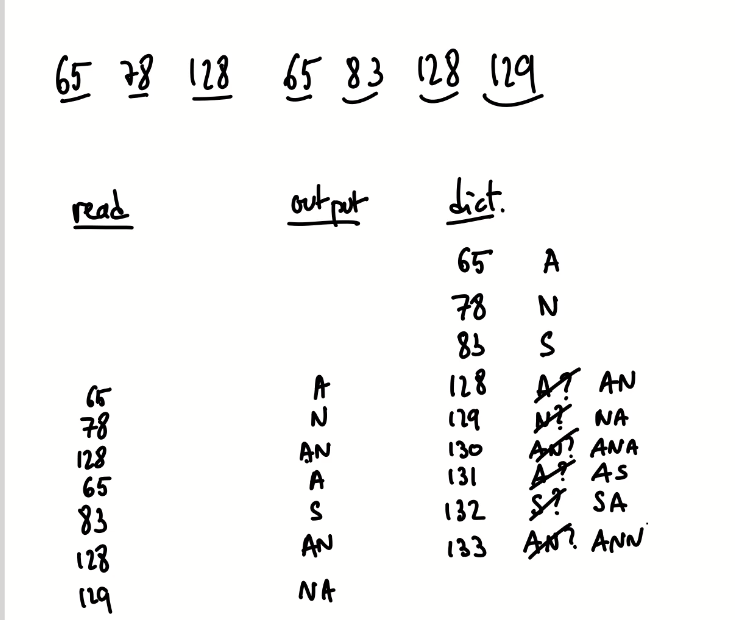 65 78 128 65 83 128 129
read output dict.
65 A
78 N
83 S
65 A 128 A? AN
78 N 129 N? NA
128 AN 130 AN? ANA
65 A 131 A? AS
83 S 132 S? SA
128 AN 133 AN? ANN
129 NA